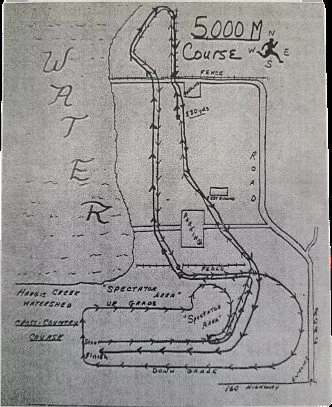 5000 M
COURSE
N
W E
S
FENCE
WATER
ROAD
PARKING
FENCE
HARGIS CREEK
WATERSHED
CROSS-COUNTRY
COURSE
"SPECTATOR
AREA"
UP GRADE
"SPECTATOR
AREA"
Start
Finish
DOWN GRADE
160 HIGHWAY